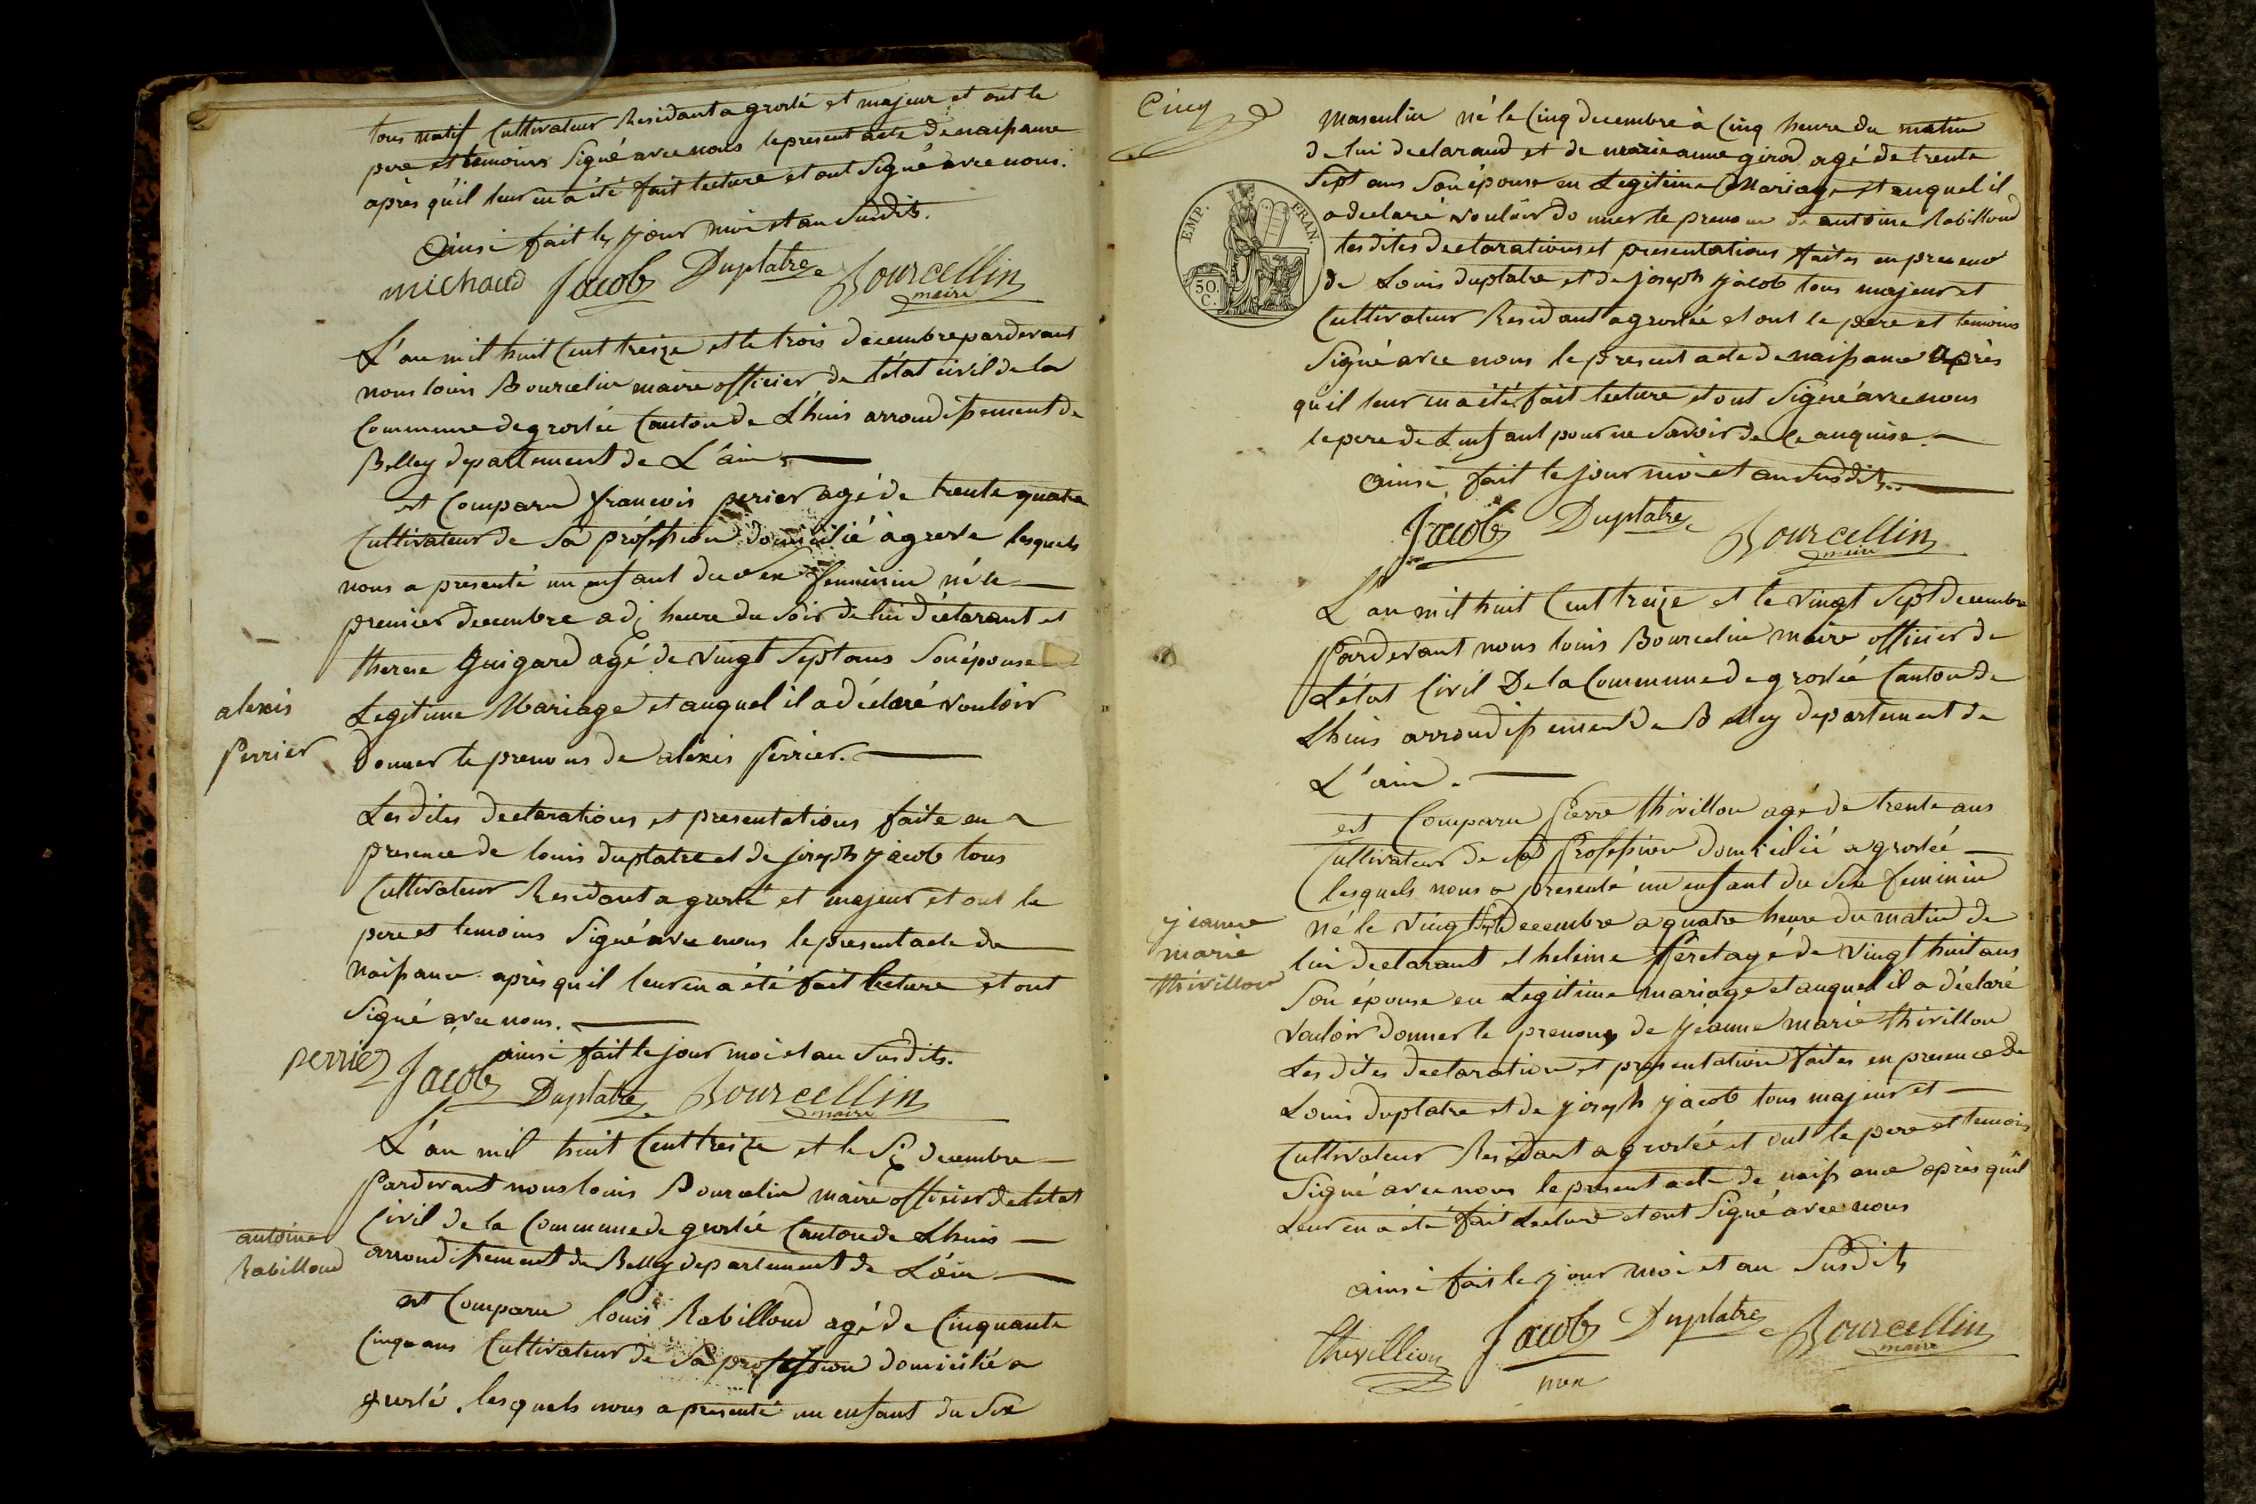 tous natif Cultivateur Residant a groslé et majeur et ont le
pere et temoins Signé avec nous le present acte de naissance
après qu'il leur en a été fait lecture et ont Signé avec nous.
Ainsi fait les jour moi et an Susdits.
michaud Jacob Duplatre Bourcellin
maire
L'an mil huit Cent treize et le trois decembre pardevant
nous louis Bourcelin maire officier de l'état civil de la
Commune de groslée Canton de Lhuis arrondissement de
Belley departement de L'ain.
est Comparu francois perier agé de trente quatre
Cultivateur de Sa proféssion domicilié à grosle lesquels
nous a presenté un enfant du sex femminin né le
premier decembre a dix heure du Soir de lui déclarant et
therese Guigard agé de vingt Sept ans Son épouse
Legitime Mariage et auquel il a déclaré vouloir
alexis
perrier
Donner le prenoms de alexis perrier.
Les dites declarations et presentations faite en
presence de louis duplatre et de joseph jacob tous
Cultivateur Residant a groslé et majeur et ont le
pere et temoins Signé avec nous le present acte de
Naissance après qu'il leur en a été fait lecture et ont
Signé avec nous.
ainsi fait le jour moi et an Susdits.
perrier Jacob Duplatre Bourcellin
maire
L'an mil huit Cent treize et le Six decembre
Pardevant nous louis Bourcelin maire officier de l'etat
Civil de la Commune de groslée Canton de Lhuis
antoine
Rabilloud
arrondissement de Belley departement de L'ain
est Comparu louis Rabilloud agé de Cinquante
Cinq ans Cultivateur de Sa profession domicilié a
groslé. lesquels nous a presenté un enfant du Sex
Cinq
masculin né le Cinq decembre à Cinq heure du matin
de lui declarand et de marieanne girod agé de trente
Sept ans Son épouse en Legitime Mariage et auquel il
a declaré vouloir donner le prenom de antoine Rabilloud
EMP. FRAN.
50.
C.
les dites declarations et presentations faites en presence
de Louis duplatre et de joseph jacob tous majeur et
Cultivateur Residant a groslée et ont le pere et temoins
Signé avec nous le present acte de naissance après
qu'il leur en a été fait lecture et ont Signé avec nous
le pere de L'enfant pour ne Savoir de Ce anquise.
ainsi fait le jour moi et an Susdits.
Jacob Duplatre Bourcellin
maire
L'an mil huit Cent treize et le vingt Sept decembre
Pardevant nous louis Bourcelin maire officier de
L'état Civil De la Commune de groslée Canton de
Lhuis arrondissement de Belley departement de
L'ain.
est Comparu Pierre thivillon agé de trente ans
Cultivateur de sa Profession domicilié a groslée
lesquels nous a presenté un enfant du Sex feminin
jeanne
marie
thivillon
né le vingt Decembre a quatre heure du matin de
lui declarant et heleine Peret agé de vingt huit ans
Son épouse en Legitime mariage et auquel il a déclaré
vouloir donner le prenoms de jeanne marie thivillon
Les dites declaration et presentation faites en presence de
Louis duplatre et de joseph jacob tous majeur et
Cultivateur Residant a groslée et ont le pere et temois
Signé avec nous le present acte de naissance après qu'il
Leur en a été fait Lecture et ont Signé avec nous
ainsi fait le jour moi et an Susdits
thivillion Jacob Duplatre Bourcellin
maire